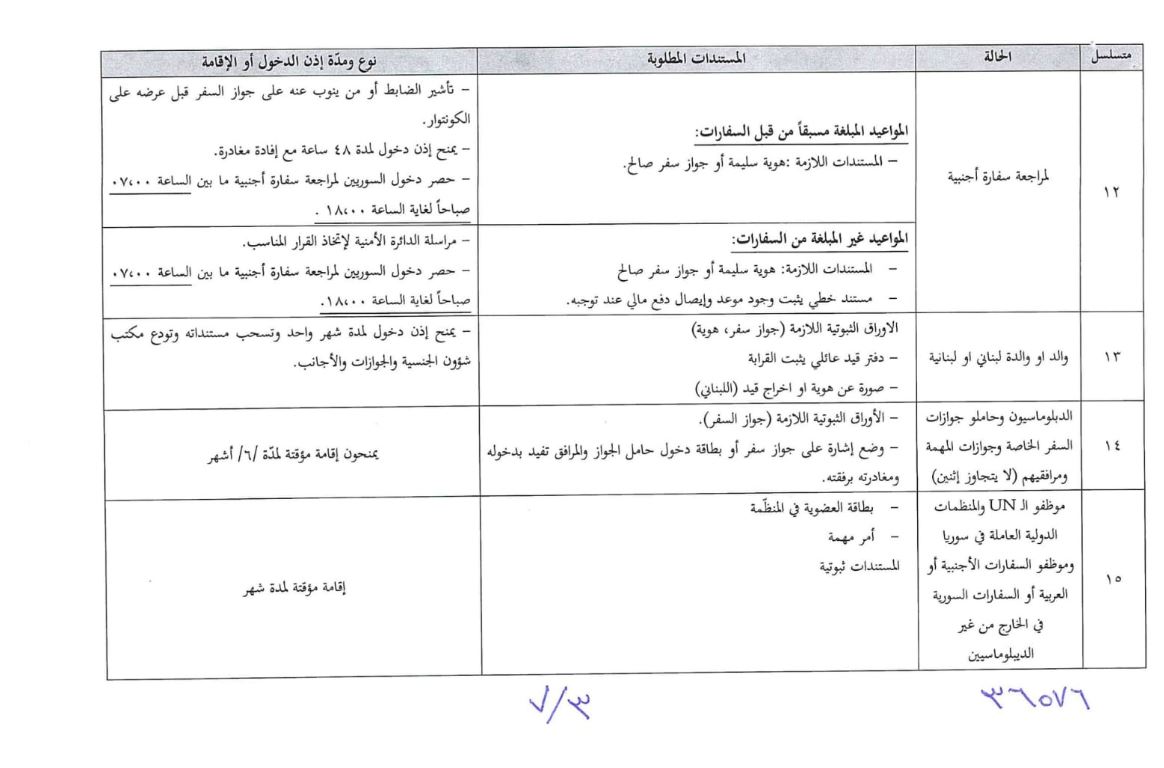 متسلسل
الحالة
المستندات المطلوبة
نوع ومدّة إذن الدخول أو الإقامة
١٢
لمراجعة سفارة أجنبية
المواعيد المبلغة مسبقاً من قبل السفارات:
– المستندات اللازمة :هوية سليمة أو جواز سفر صالح.
– تأشير الضابط أو من ينوب عنه على جواز السفر قبل عرضه على
الكونتوار.
– يمنح إذن دخول لمدة ٤٨ ساعة مع إفادة مغادرة.
– حصر دخول السوريين لمراجعة سفارة أجنبية ما بين الساعة ٠٧،٠٠
صباحاً لغاية الساعة ١٨،٠٠ .
المواعيد غير المبلغة من السفارات:
– المستندات اللازمة: هوية سليمة أو جواز سفر صالح
– مستند خطي يثبت وجود موعد وإيصال دفع مالي عند توجبه.
– مراسلة الدائرة الأمنية لإتخاذ القرار المناسب.
– حصر دخول السوريين لمراجعة سفارة أجنبية ما بين الساعة ٠٧،٠٠
صباحاً لغاية الساعة ١٨،٠٠.
١٣
والد او والدة لبناني او لبنانية
الاوراق الثبوتية اللازمة (جواز سفر، هوية)
– دفتر قيد عائلي يثبت القرابة
– صورة عن هوية او اخراج قيد (اللبناني)
– يمنح إذن دخول لمدة شهر واحد وتسحب مستنداته وتودع مكتب
شؤون الجنسية والجوازات والأجانب.
١٤
الدبلوماسيون وحاملو جوازات
السفر الخاصة وجوازات المهمة
ومرافقيهم (لا يتجاوز إثنين)
– الأوراق الثبوتية اللازمة (جواز السفر).
– وضع إشارة على جواز سفر أو بطاقة دخول حامل الجواز والمرافق تفيد بدخوله
ومغادرته برفقته.
يمنحون إقامة مؤقتة لمدّة /٦/ أشهر
١٥
موظفو الـ UN والمنظمات
الدولية العاملة في سوريا
وموظفو السفارات الأجنبية أو
العربية أو السفارات السورية
في الخارج من غير
الديبلوماسيين
– بطاقة العضوية في المنظّمة
– أمر مهمة
المستندات ثبوتية
إقامة مؤقتة لمدة شهر
٣٦٥٧٦
٧/٣